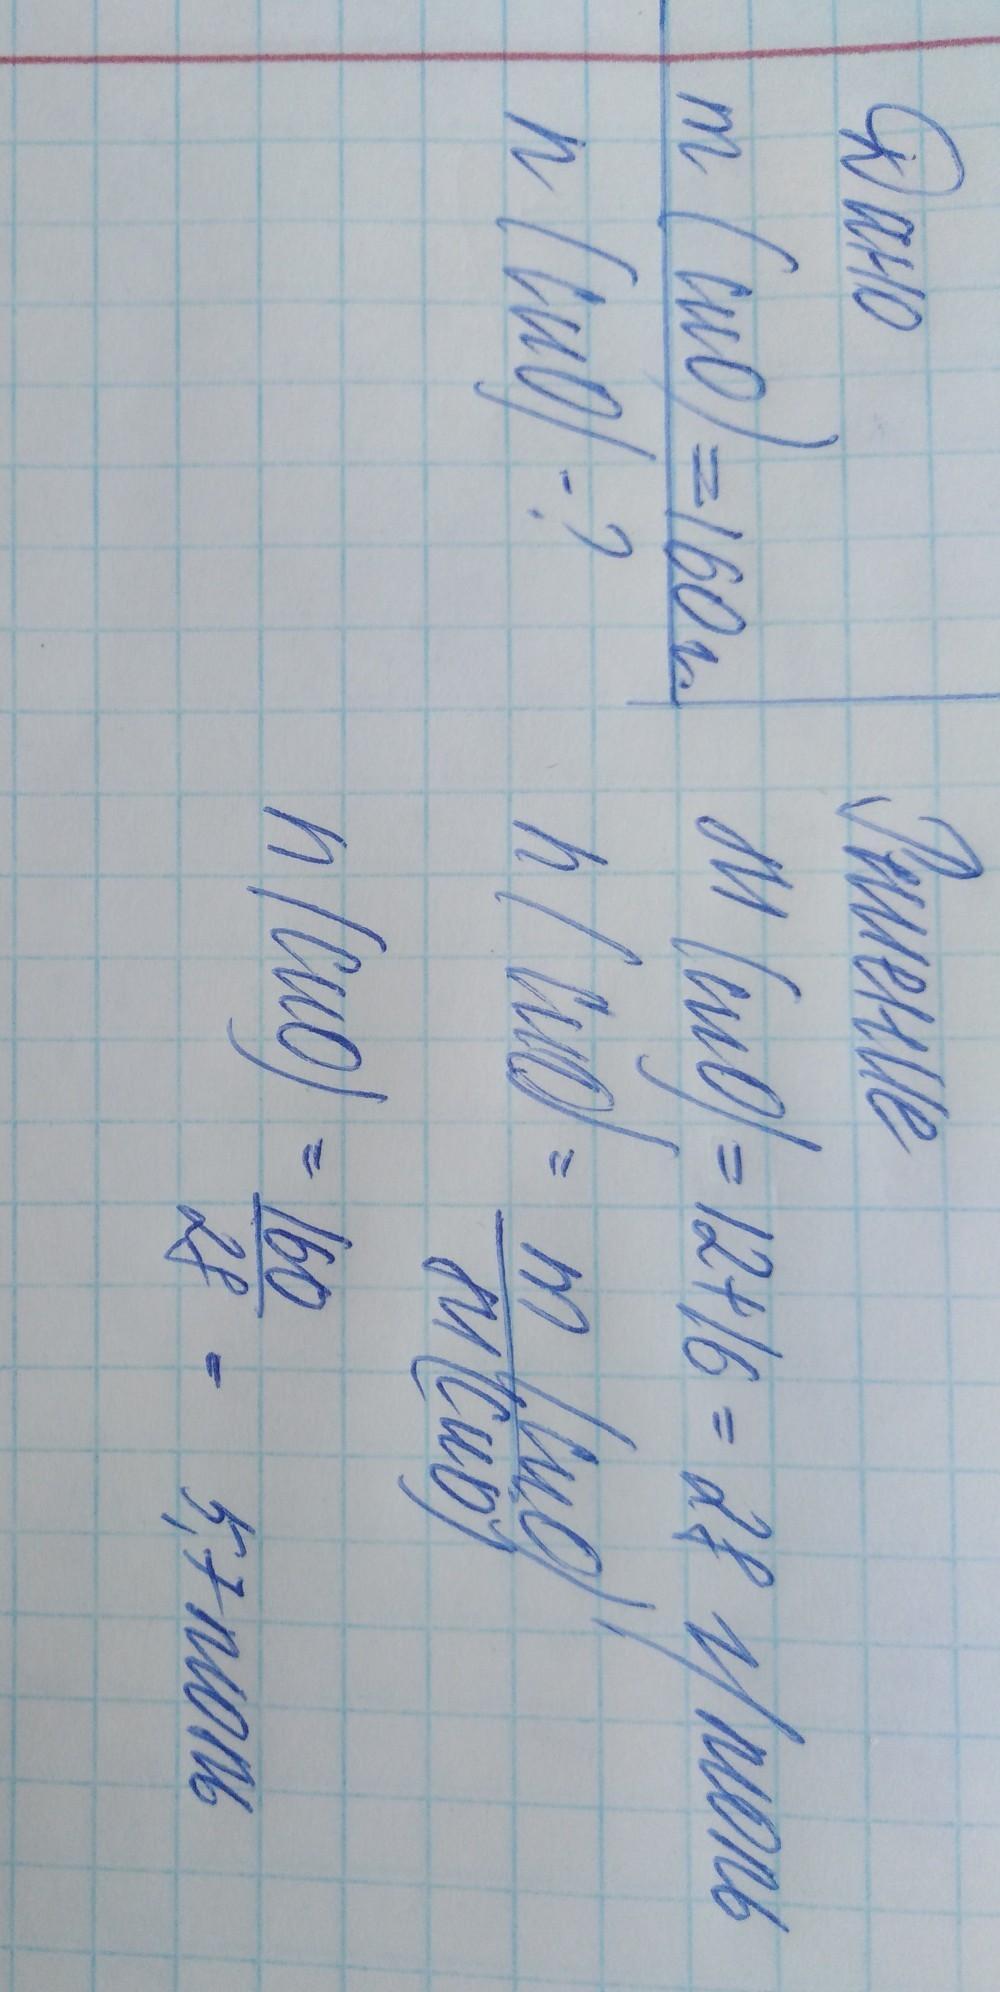 Дано
m (CuO) = 160 г.
n (CuO) - ?
Решение
M (CuO) = 12+16 = 28 г/моль
n (CuO) = m (CuO) / M (CuO)
n (CuO) = 160 / 28 = 5,7 моль